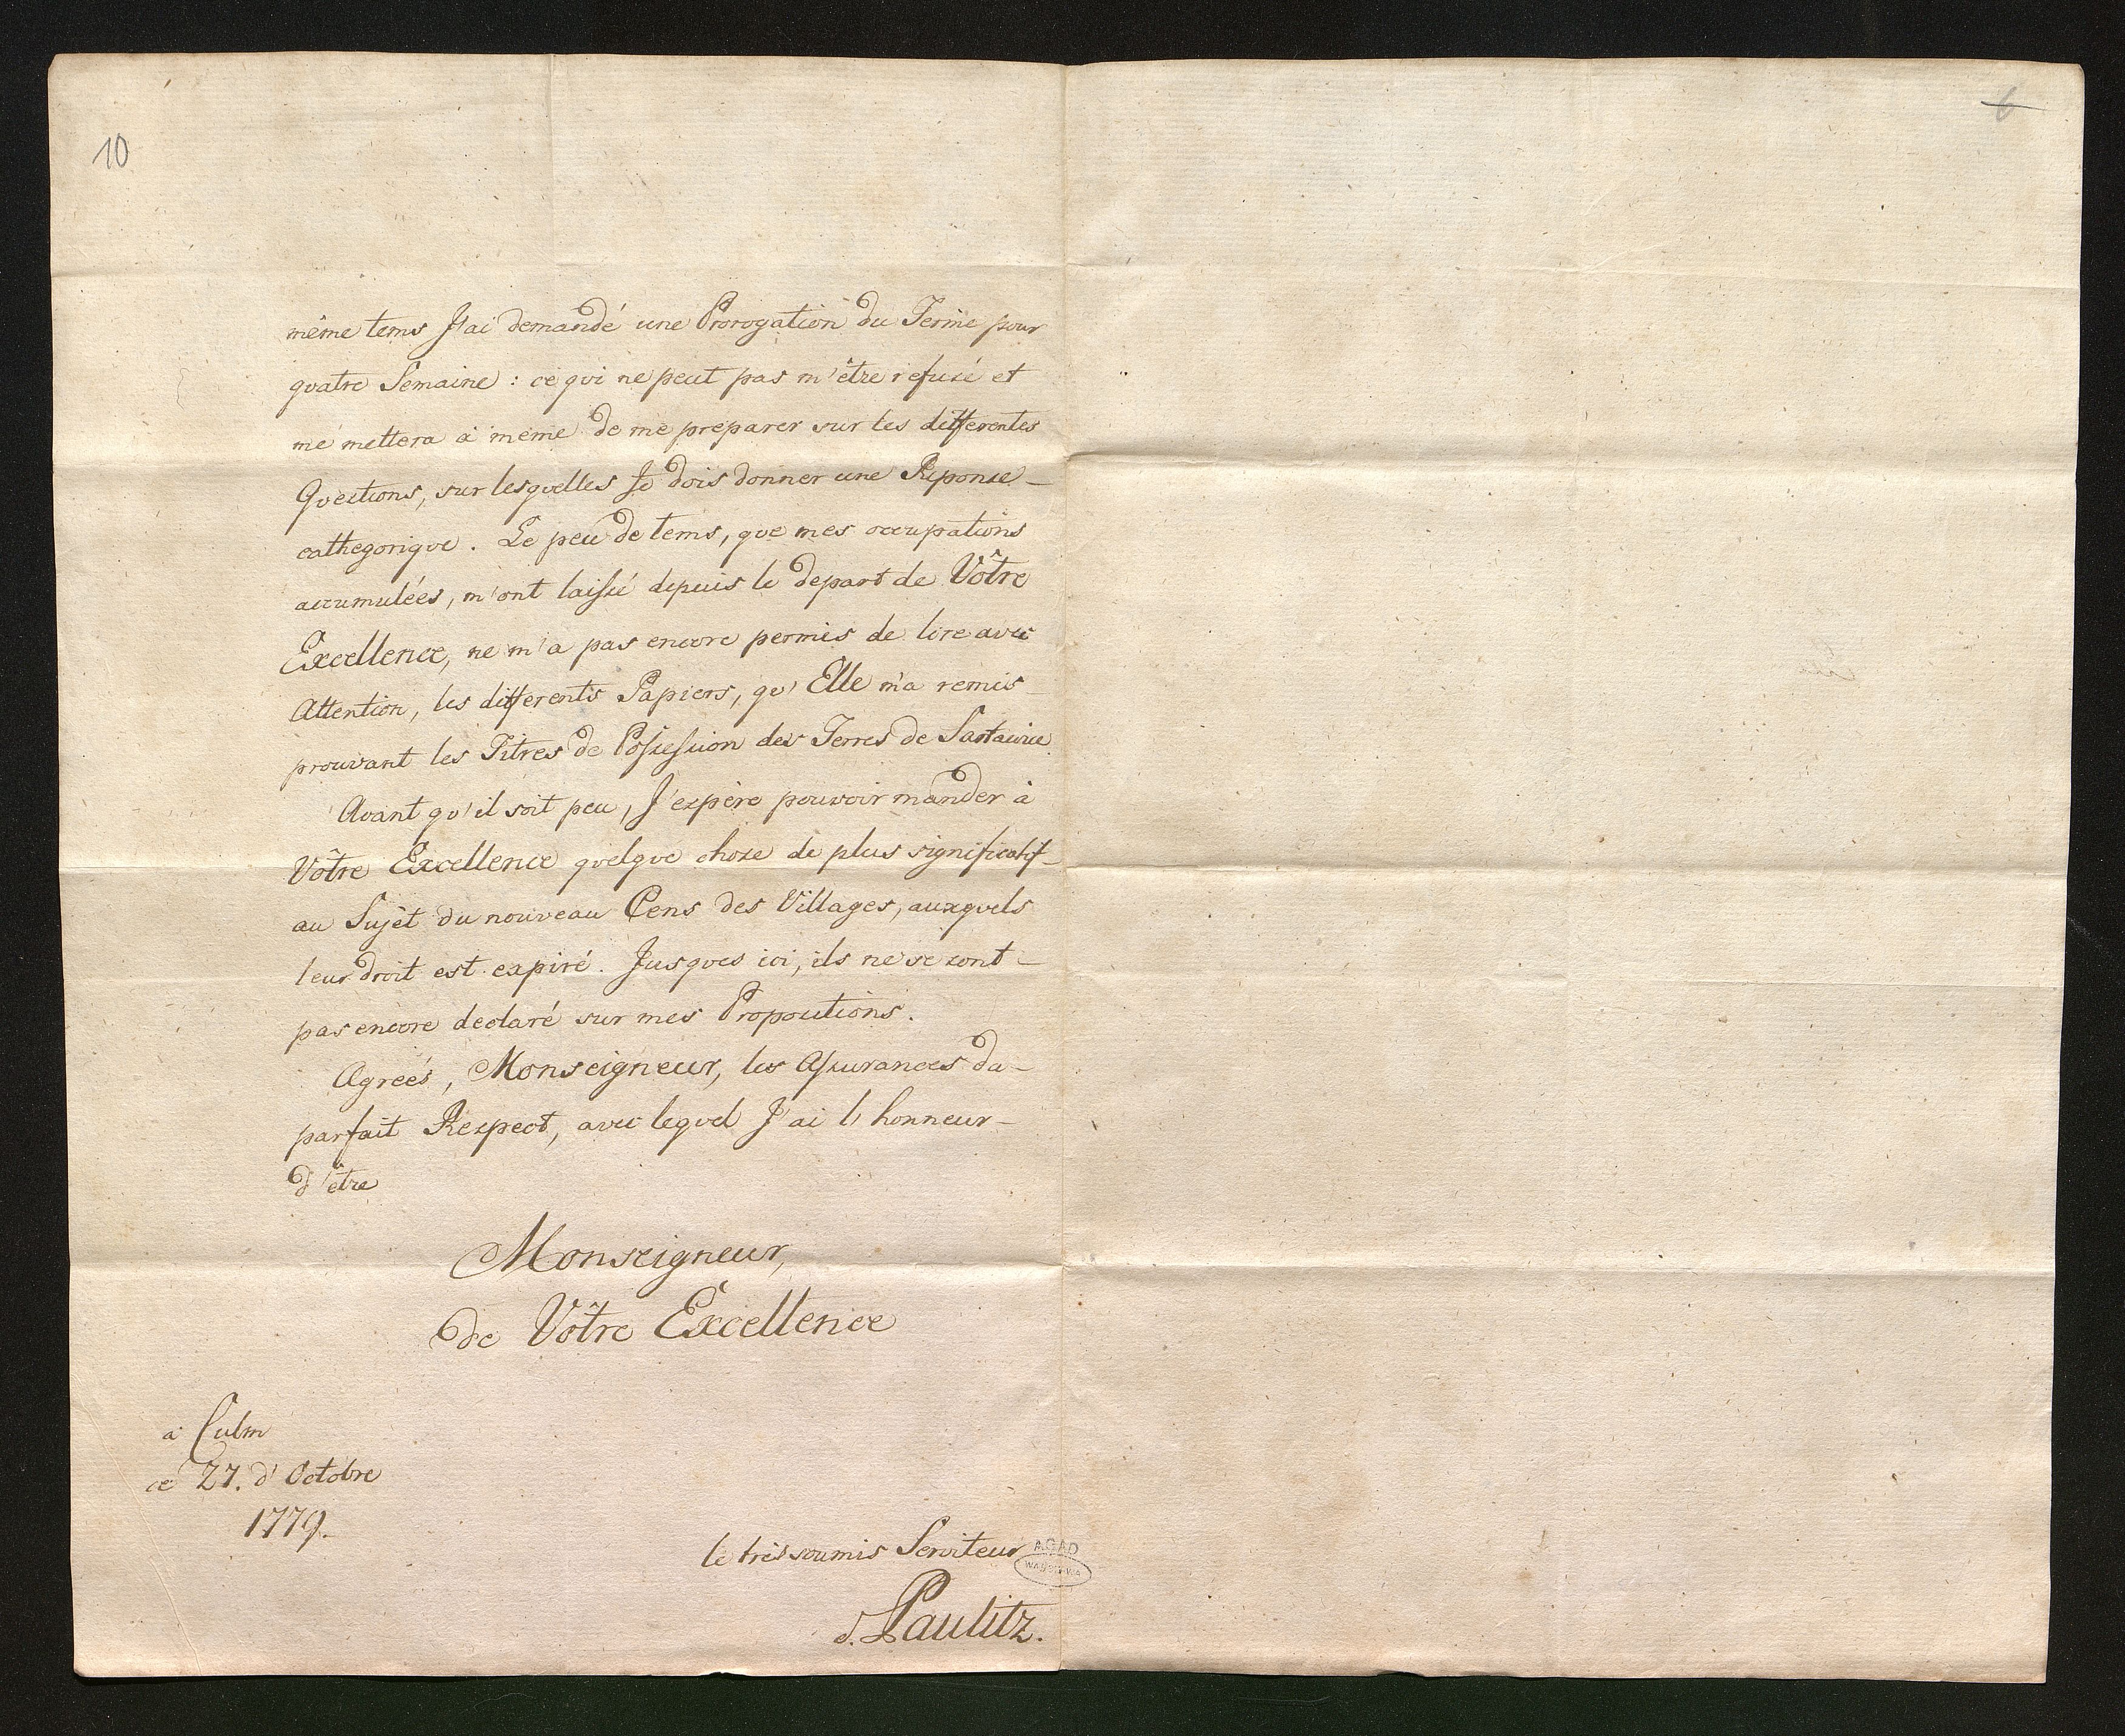 10
6
même tems J'ai demandé une Prorogation du Terme pour
quatre Semaine : ce qui ne peut pas m'être refusé et
me mettera à même de me preparer sur les differentes
Questions, sur lesquelles Je dois donner une Reponse
cathegorique. Le peu de tems, que mes occupations
accumulées, m'ont laissé depuis le depart de Vôtre
Excellence, ne m'a pas encore permis de lire avec
Attention, les differents Papiers, qu'Elle m'a remis
prouvant les Titres de Possession des Terres de Sartawice
Avant qu'il soit peu, J'espère pouvoir mander à
Vôtre Excellence quelque chose de plus significatif
au Sujèt du nouveau Cens des Villages, auxquels
leur droit est expiré. Jusques ici, ils ne se sont
pas encore declaré sur mes Propositions.
Agreés, Monseigneur, les Assurances du
parfait Respect, avec lequel J'ai l'honneur
d'être
Monseigneur,
de Vôtre Excellence
à Culm
ce 27. d'Octobre
1779.
le très soumis Serviteur
AGAD
WARSZAWA
d. Paulitz.